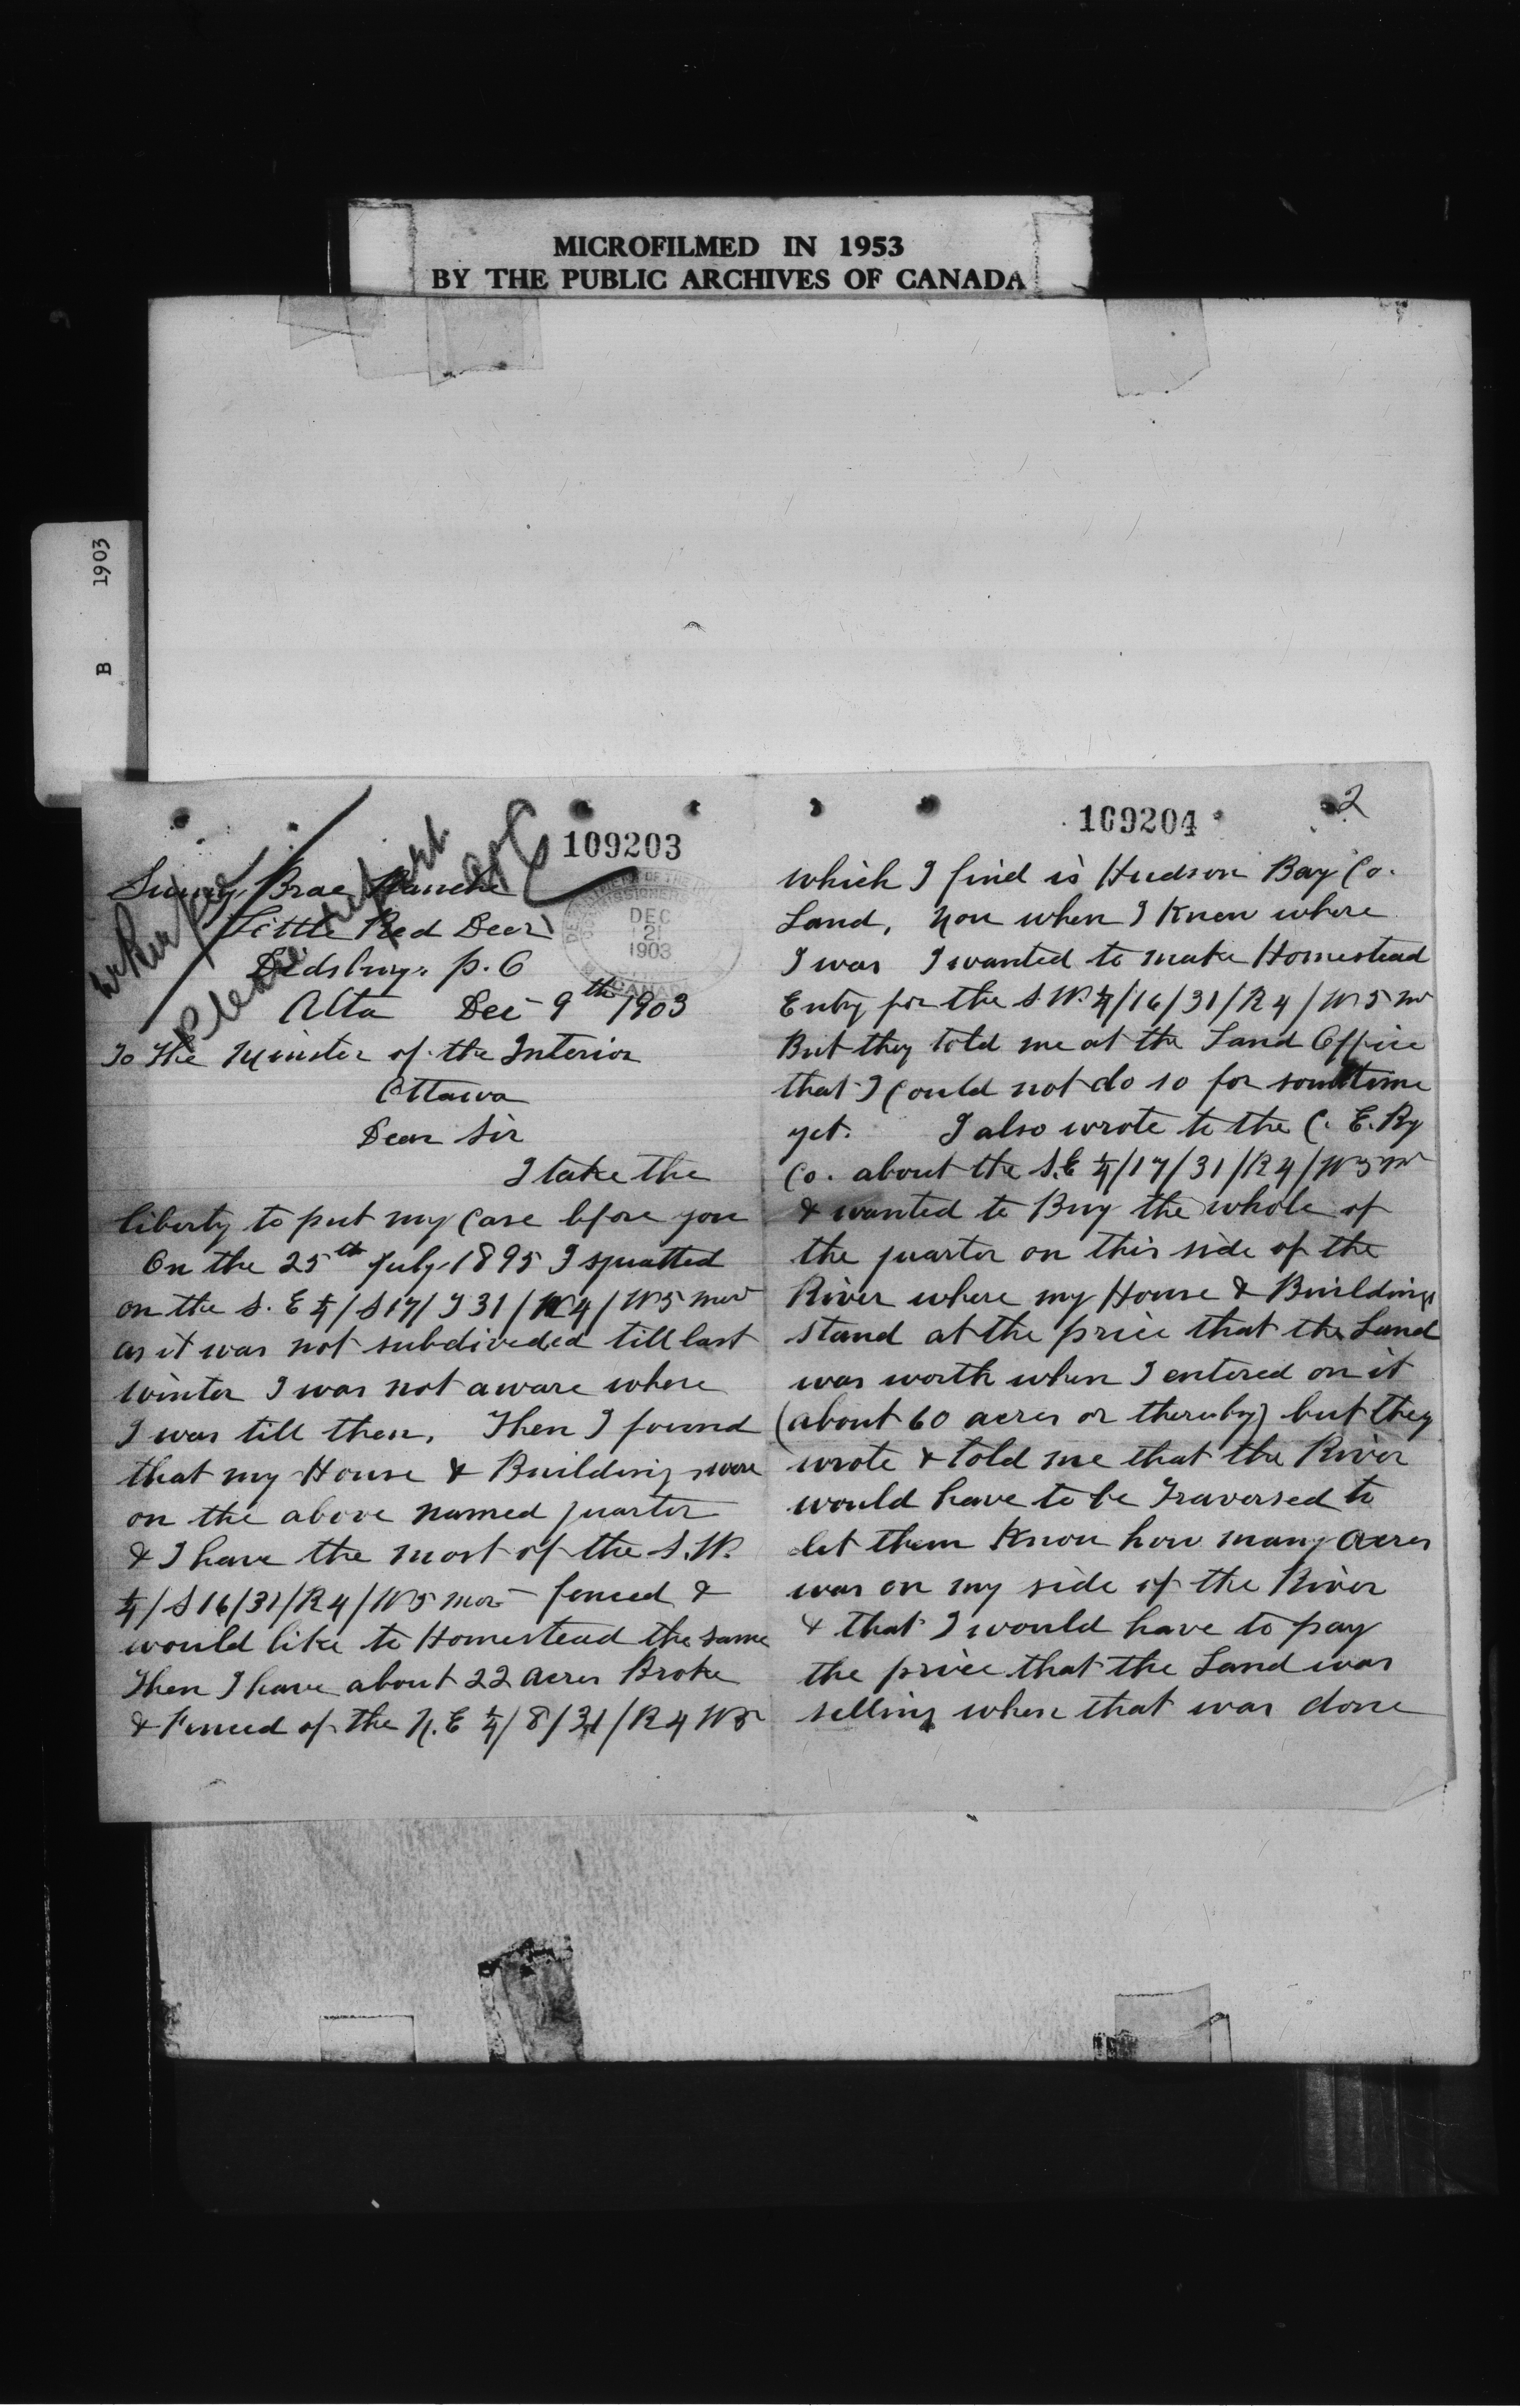 MICROFILMED IN 1953
BY THE PUBLIC ARCHIVES OF CANADA
B 1903
109203
Please report
DEC
21
1903
CANADA
Sunny Brae Ranche
Little Red Deer
Didsbury. P.O
Alta Dec 9th 1903
To The Minister of the Interior
Ottawa
Dear Sir
I take the
liberty to put my Case before you
On the 25th July 1895 I squatted
on the S. E 1/4/ S 17/ T 31/ R 4/ W 5 mer
as it was not subdivided till last
winter I was not aware where
I was till then. Then I found
that my House & Buildings were
on the above named quarter
& I have the most of the S.W.
1/4/ S 16/31/R4/W 5 mer fenced &
would like to Homestead the same
Then I have about 22 acres Broke
& Fenced of the N.E 1/4/ 8/31/R4 W5
109204
2
which I find is Hudson Bay Co.
Land, Now when I Knew where
I was I wanted to make Homestead
Entry for the S.W. 1/4/16/31/R4/W 5 m
But they told me at the Land Office
that I Could not do so for sometime
yet. I also wrote to the C. E. Ry
Co. about the S.E 1/4/17/31/R4/W5 m
& wanted to Buy the whole of
the quarter on this side of the
River where my House & Buildings
stand at the price that the Land
was worth when I entered on it
(about 60 acres or thereby) but they
wrote & told me that the River
would have to be Traversed to
let them Know how many acres
was on my side of the River
& that I would have to pay
the price that the Land was
selling when that was done